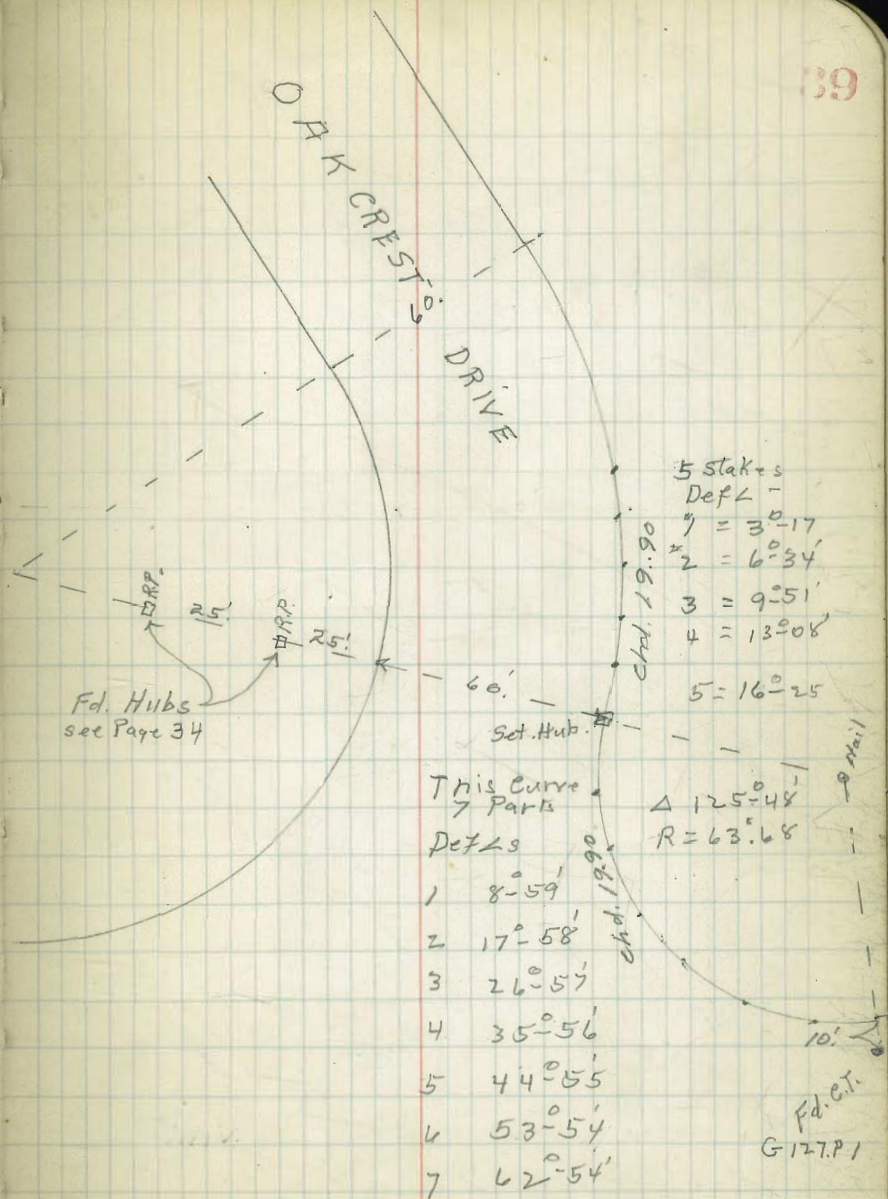 39
OAK CREST DRIVE
60'
5 Stakes
Def∠ -
1 = 3°-17
#2 = 6°-34'
3 = 9°-51'
4 = 13°-08'
5 = 16°-25
Chd. 19.90
R.P.
25'
R.P.
25'
60'
Fd. Hubs
see Page 34
Set. Hub.
Nail
This Curve
7 Parts
Δ 125°-48'
R = 63.68
Def∠s
chd. 19.90
1 8°-59'
2 17°-58'
3 26°-57'
4 35°-56'
5 44°-55
6 53°-54'
7 62°-54'
10'
Fd. C.T.
G 127.P1